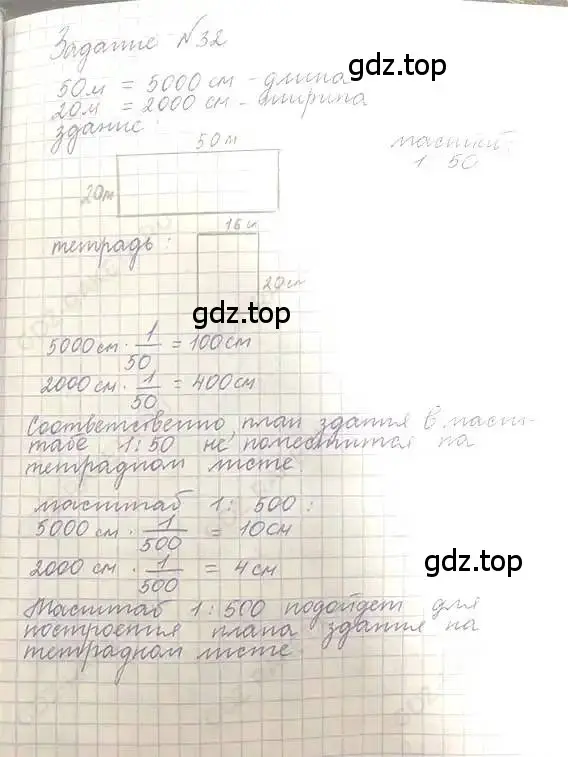 Задание №32
50м = 5000 см - длина
20м = 2000 см - ширина
здание:
50м
20м
масштаб:
1 50
тетрадь:
16 см
20см
gdz.top
gdz.top
5000 см · 1/50 = 100см
2000 см · 1/50 = 400см
gdz.top
Соответственно, план здания в масш-
табе 1:50 не поместится на
тетрадном листе.
масштаб 1: 500:
5000 см · 1/500 = 10см
2000 см · 1/500 = 4см
gdz.top
Масштаб 1:500 подойдет для
построения плана здания на
тетрадном листе.